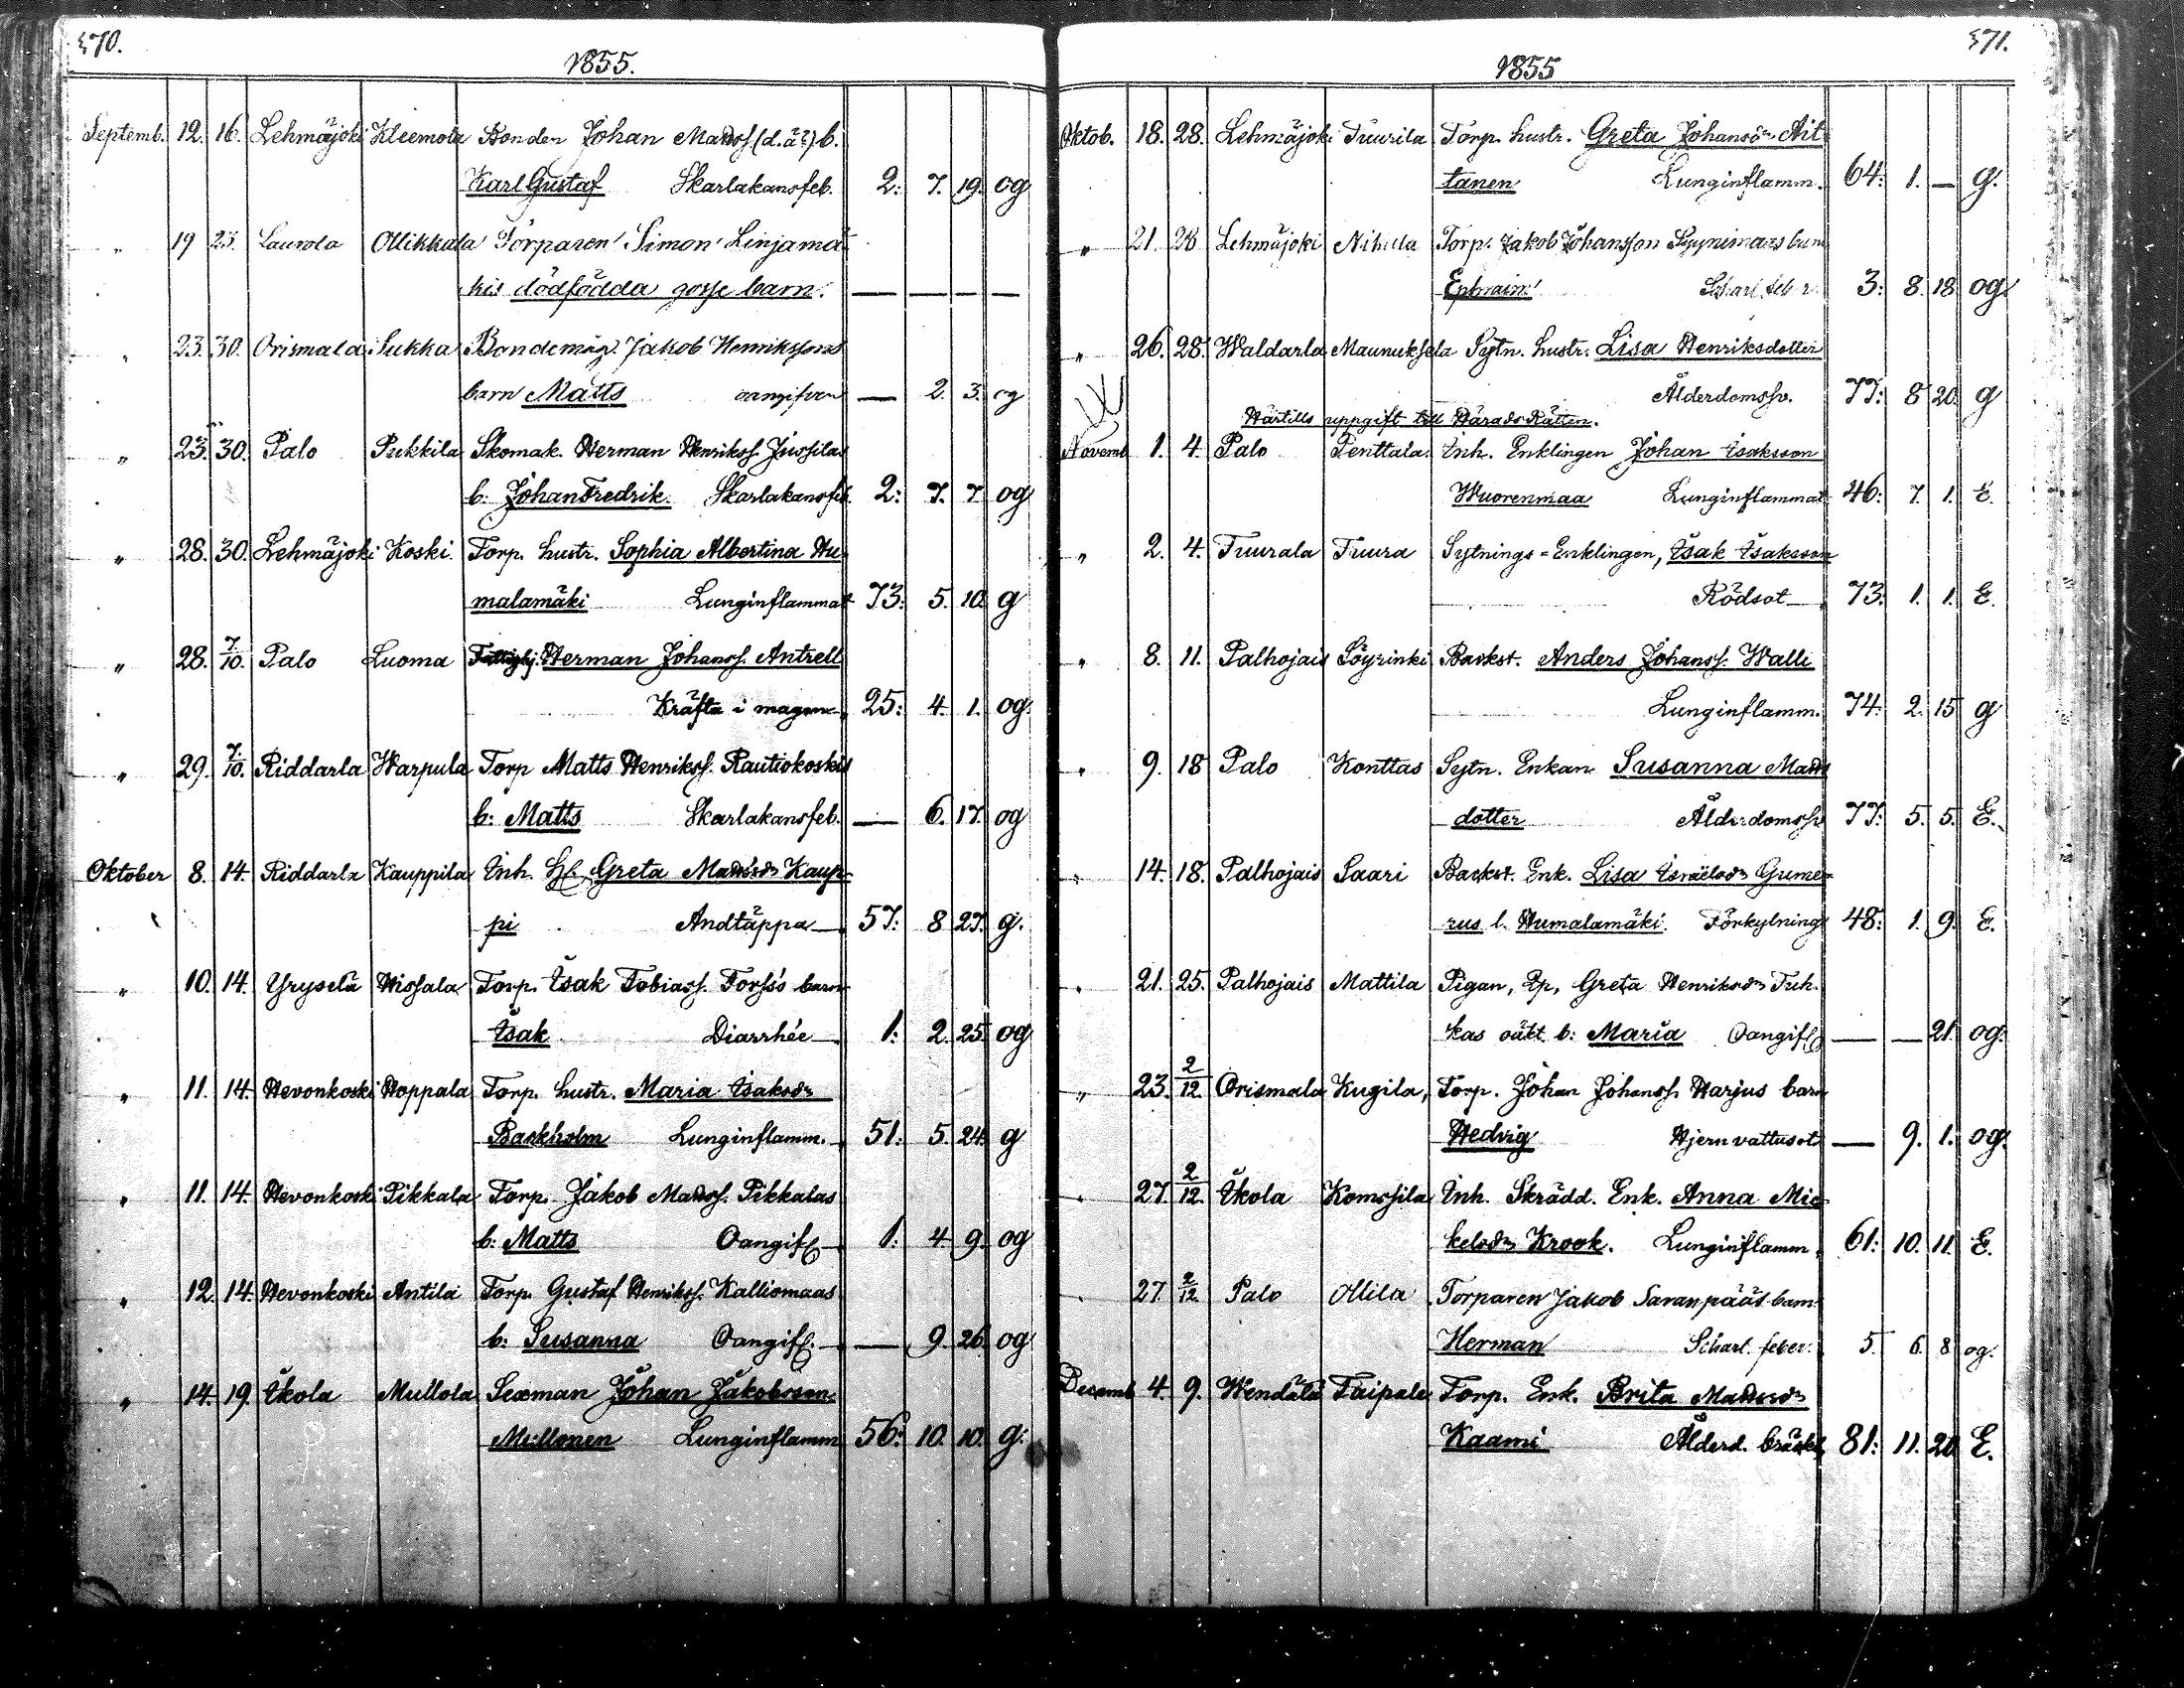 570.
1855.
Septemb. 12. 16. Lehmäjoki Kleemola Bonden Johan Mattss. (d.ä?) b.
Karl Gustaf Skarlakansfeb. 2: 7. 19. og
" 19 23. Laurola Ollikkala Torparen Simon Linjamä-
kis dödfödda gosse barn. — — — —
" 23. 30. Orismala Sukka Bondemåg. Jakob Henrikssons
barn Matts oangifven — 2. 3. og
" 23. 30. Palo Pukkila Skomak. Herman Henrikss. Jussilas
b: Johan Fredrik. Skarlakansfeb. 2: 7. 7 og
" 28. 30. Lehmäjoki Koski. Torp. hustr. Sophia Albertina Hu-
malamäki Lunginflammat 73: 5. 10. g
" 28. 7/10. Palo Luoma Fattighj. Herman Johanss. Antrell
Kräfta i magen 25: 4. 1. og.
" 29. 7/10. Riddarla Warpula Torp Matts Henrikss. Rautiokoskis
b: Matts Skarlakansfeb. — 6. 17. og
Oktober 8. 14. Riddarla Kauppila Inh. Hl. Greta Mattsdr Kaup-
pi Andtäppa 57: 8 27. g.
" 10. 14. Yryselä Hissala Torp. Isak Tobiass. Forss's barn
Isak Diarrhée 1: 2. 25. og
" 11. 14. Hevonkoski Hoppala Torp. hustr. Maria Isaksdr
Backholm Lunginflamm. 51: 5. 24. g
" 11. 14. Hevonkoski Pikkala Torp. Jakob Mattss. Pikkalas
b: Matts Oangif. 1: 4. 9. og
" 12. 14. Hevonkoski Antila Torp. Gustaf Henrikss. Kalliomaas
b: Susanna Oangif. — 9. 26. og
" 14. 19. Ikola Mullola Sexman Johan Jakobsson
Mullonen Lunginflamm 56: 10. 10. g.
571.
1855
Oktob. 18. 28. Lehmäjoki Tuurila Torp. hustr. Greta Johansdr Ait-
tanen Lunginflamm. 64: 1. — g.
" 21. 28 Lehmäjoki Torp. Jakob Johansson barn
Ephraim Scharl. feber 3: 8. 18. og.
" 26. 28. Waldarla Maunuksela Sytn. hustr. Lisa Henriksdotter
Ålderdomssv. 77: 8 20. g
Härtills uppgift till Härads Rätten.
Novemb. 1. 4. Palo Penttala. Inh. Enklingen Johan Isaksson
Wuorenmaa Lunginflammat. 46: 7. 1. E.
" 2. 4. Tuurala Tuura Sytnings=Enklingen, Isak Isaksson
Rödsot 73: 1. 1. E.
" 8. 11. Palhojais Löyrinki Backst. Anders Johanss. Walli
Lunginflamm. 74: 2. 15 g
" 9. 18 Palo Konttas Sytn. Enkan Susanna Matts
dotter Ålderdomssv 77: 5. 5. E.
" 14. 18. Palhojais Saari Backst. Enk. Lisa Israëlsdr Gume-
rus l. Humalamäki. Förkylning 48: 1. 9. E.
" 21. 25. Palhojais Mattila Pigan, Qp, Greta Henriksdr Tuh-
kas oäkt. b: Maria Oangif. — — 21. og.
" 23. 2/12. Orismala Kugila, Torp. Johan Johanss. Harjus barn
Hedvig Hjernvattusot — 9. 1. og.
" 27. 2/12. Ikola Komssila Inh. Skrädd. Enk. Anna Mic-
kelsdr Krook. Lunginflamm. 61: 10. 11. E.
" 27. 2/12. Palo Ollila Torparen Jakob Saranpääs barn
Herman Scharl. feber. 5. 6. 8 og.
Decemb 4. 9. Wendälä Taipale Torp. Enk. Brita Mattsdr
Kaami Ålderd. bräckl. 81: 11. 20. E.